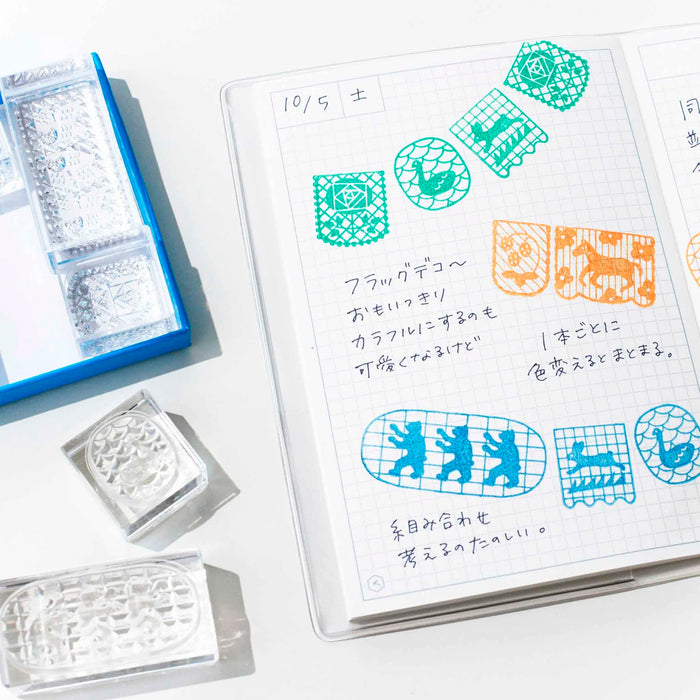 10/5 土
フラッグデコ〜
おもいっきり
カラフルにするのも
可愛くなるけど
1本ごとに
色変えるとまとまる。
組み合わせ
考えるのたのしい。
同
並